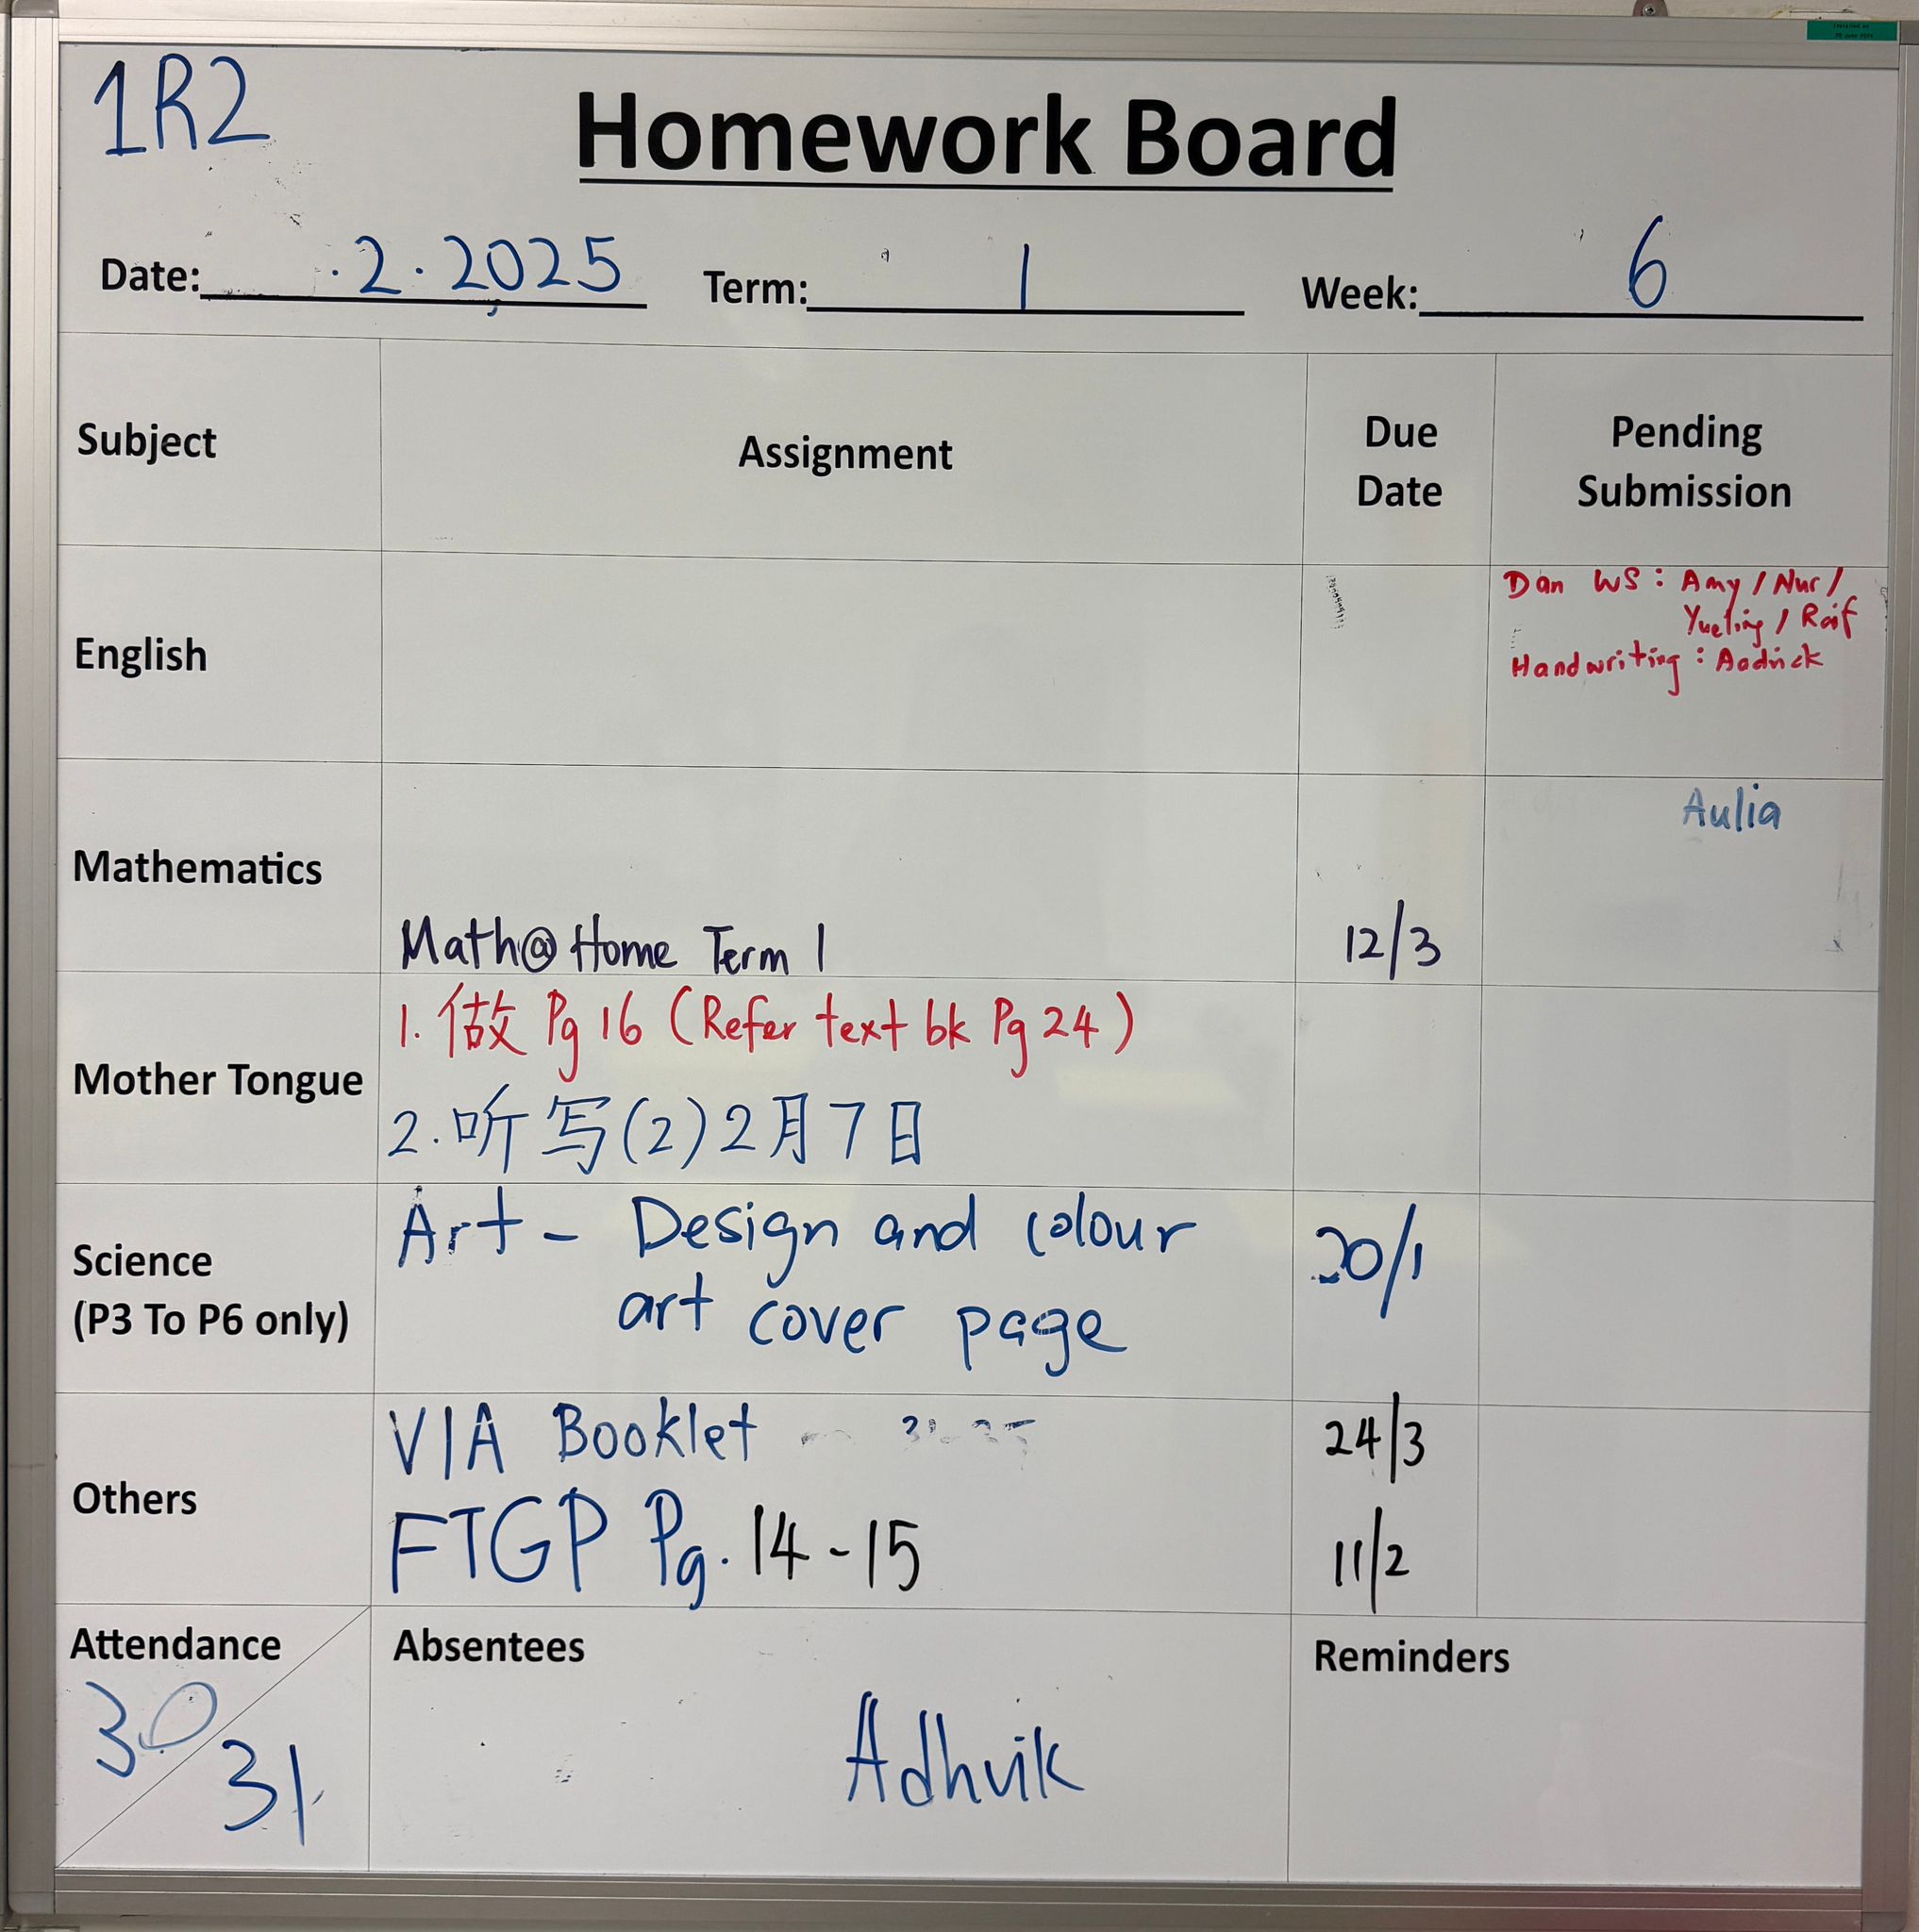 1R2
Homework Board
Date: .2.2025 Term: 1 Week: 6
Subject Assignment Due Date Pending Submission
English
Dan WS: Amy / Nur /
Yueling / Raif
Handwriting: Aadrick
Mathematics
Aulia
Math@Home Term 1 12/3
Mother Tongue
1. 做 Pg 16 (Refer text bk Pg 24)
2. 听写(2) 2月7日
Science
(P3 To P6 only)
Art - Design and colour
art cover page
20/1
Others
VIA Booklet 24/3
FTGP Pg. 14-15 11/2
Attendance
30/31
Absentees
Adhvik
Reminders